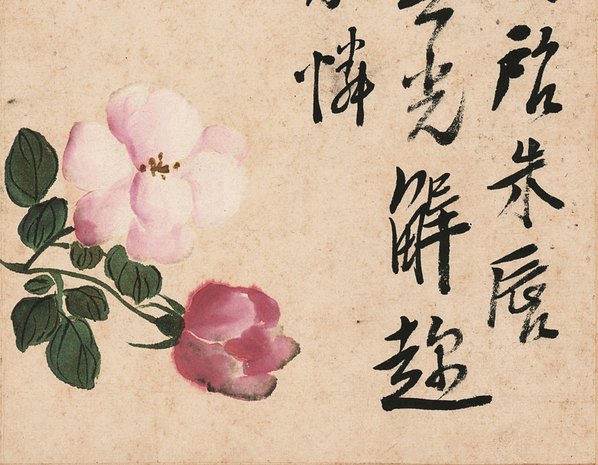 啟朱唇
光解趂
憐